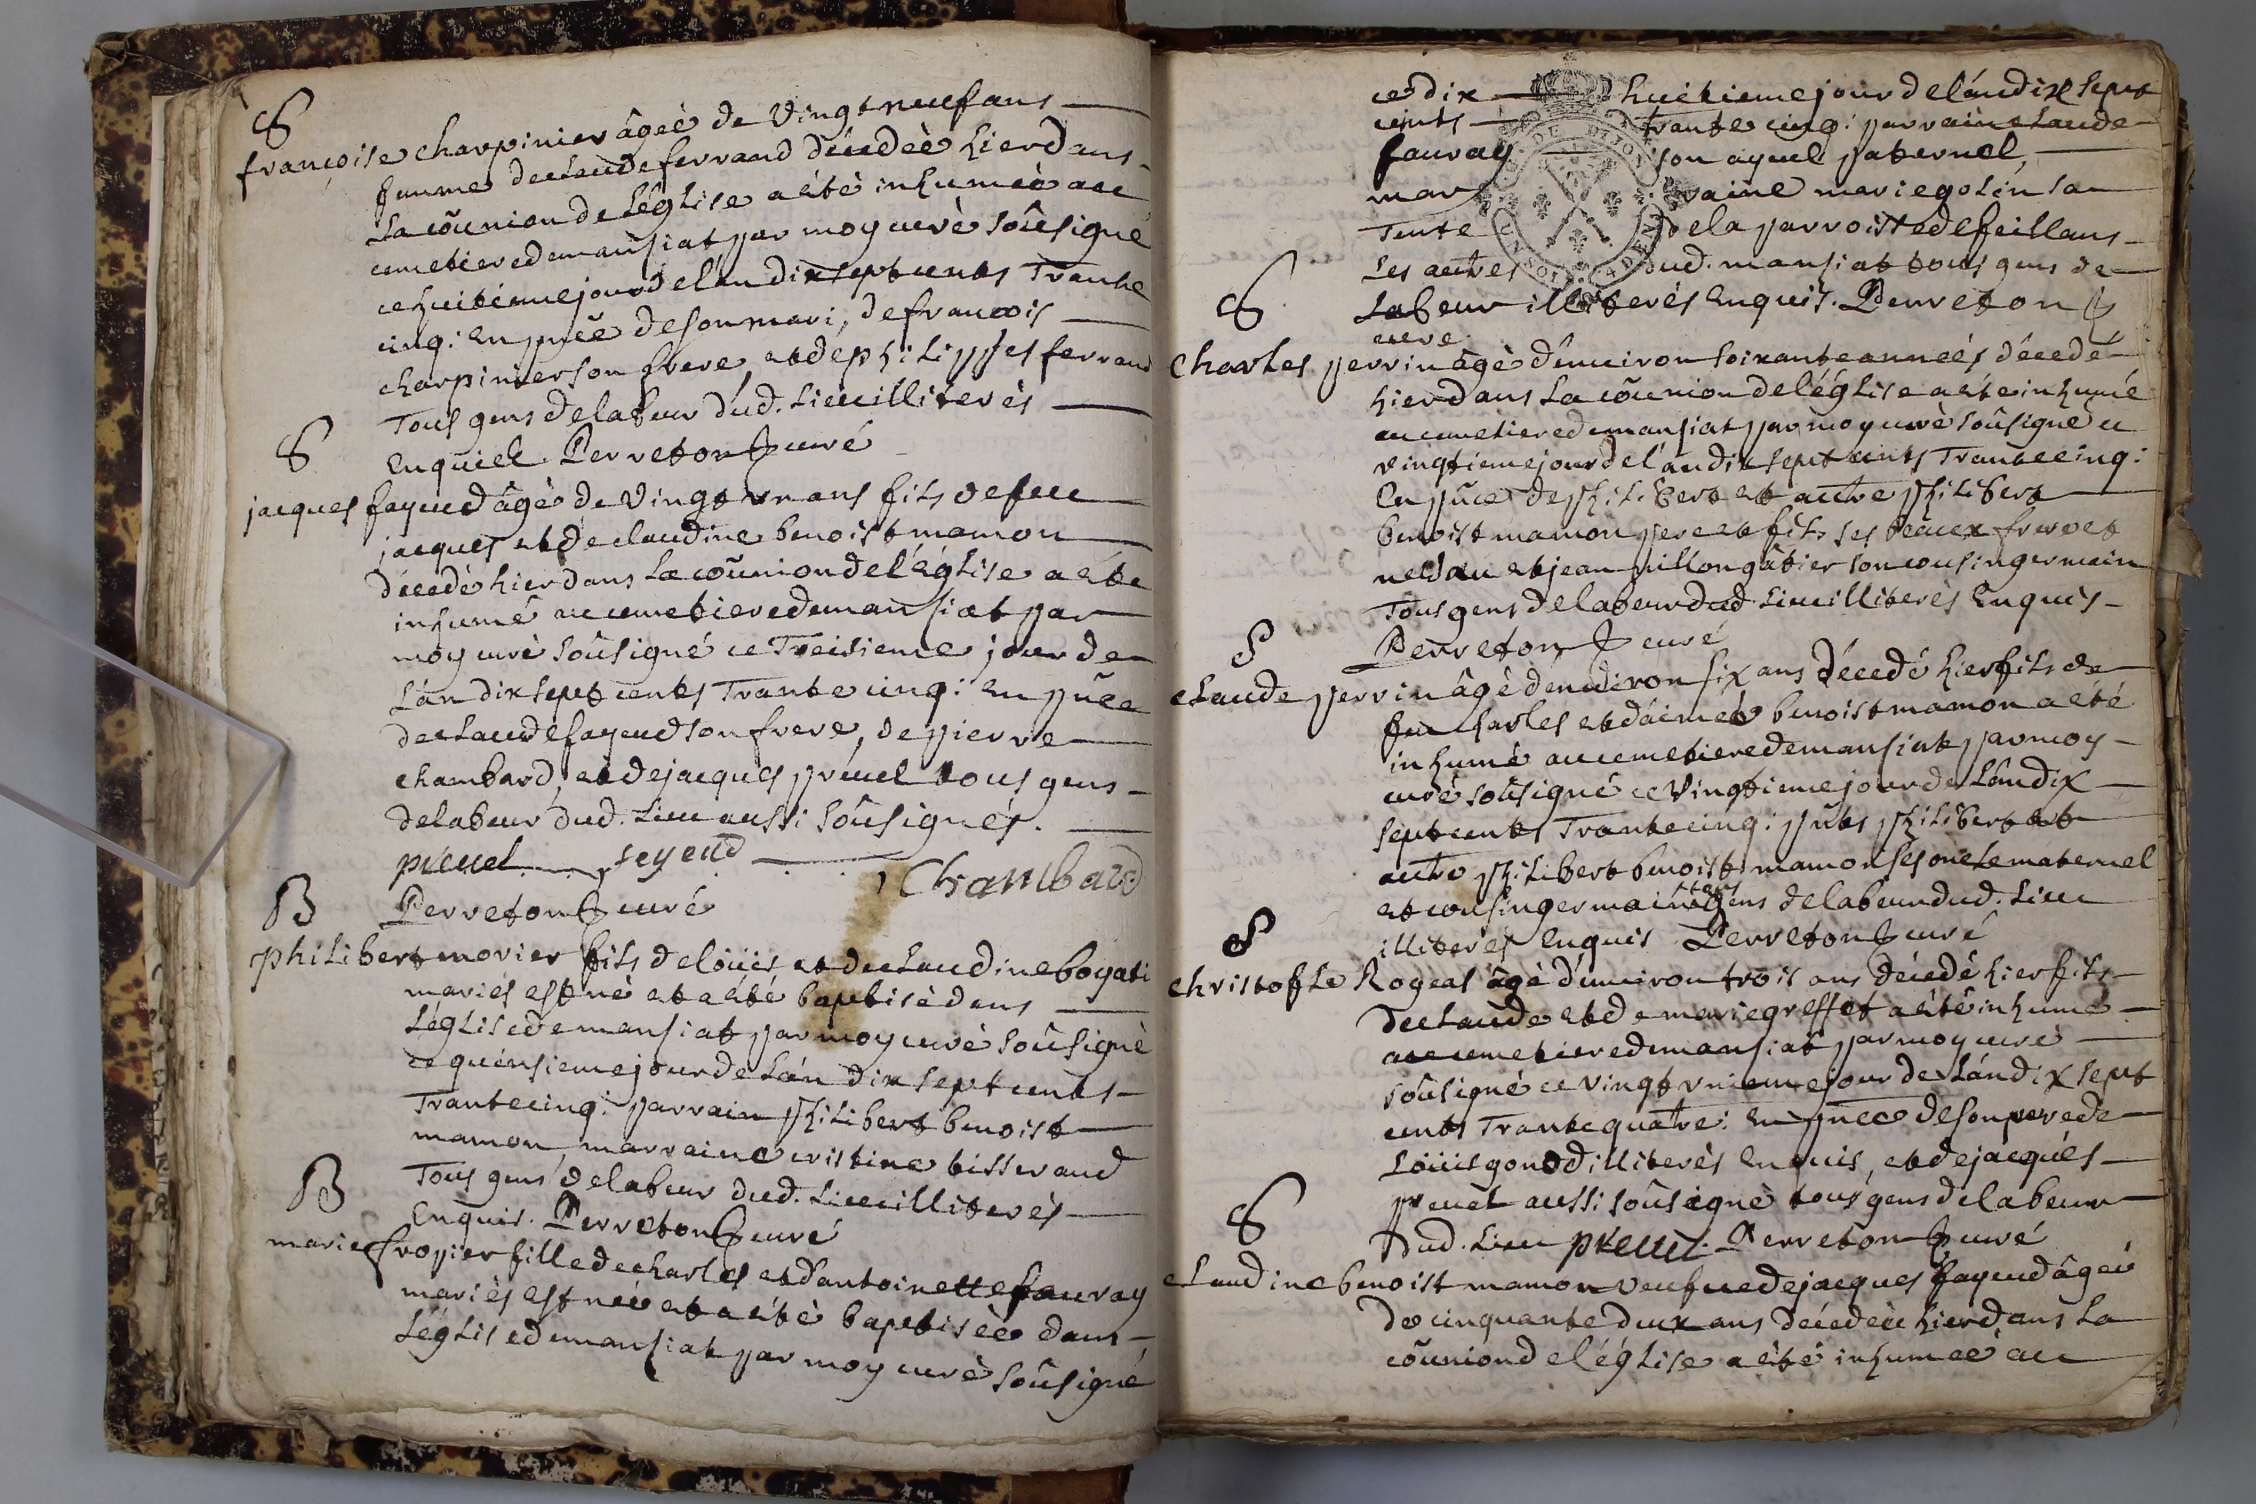 S
françoise charpinier âgeè de vingt neuf ans
femme de claude ferrand décedeè hier dans
la coũnion de l'église a étè inhumeè au
cemetiere de mansiat par moy curè soûsigné
ce huitiéme jour de l'an dix sept cents trante
cinq: en pñce de son mari, de francois
charpinier son frere, et de philippes ferrand
tous gens de labeur dud. lieu illiterès
enquiel Perreton curé
S
jacques fayend âgè de vingt vn ans fils de feu
jacques et de claudine benoist mamon
décedè hier dans la coũnion de l'église a été
inhumé au cemetiere de mansiat par
moy curè soûsigné ce treisieme jour de
l'an dix sept cents trante cinq: en pñce
de claude fayend son frere, de pierre
chambard, et de jacques préuel tous gens
de labeur dud. lieu aussi soûsignés.
preuel feyend Chambard
Perreton curé
B
philibert morier fils de loüis et de claudine bogati
mariés est nè et a été baptisè dans
l'église de mansiat par moy curè soûsignè
ce quinsieme jour de l'an dix sept cents
trante cinq: parrain philibert benoist
mamon, marraine cristine tisserand
tous gens de labeur dud. lieu illiterés
enquis. Perreton curé
B
marie fropier fille de charles et d'antoinette fauray
mariès est neè et a étè baptiseè dans
l'église de mansiat par moy curè soûsigné
ce dix huitieme jour de l'an dix sept
cents trante cinq: parrain claude
fauray son ayeul paternel,
mar raine marie golin sa
tente de la parroisse de feillans
les autres dud. mansiat tous gens de
labeur illiterés enquis. Perreton
curé
S
charles perrin âgè d'enuiron soixante anneés décedé
hier dans la coũnion de l'église a été inhumé
au cemetiere de mansiat par moy curè soûsigné ce
vingtieme jour de l'an dix sept cents trante cinq:
en pñce de philibert et autre philibert
benoist mamon pere et fils ses beaux frere et
neueu et jean pillon gâtier son cousin germain
tous gens de labeur dud. lieu illiterès enquis
Perreton curé
S
claude perrin âgè d'enuiron six ans décedé hier fils de
feu charles et d'aimeè benoist mamon a eté
inhumé au cemetiere de mansiat par moy
curè soûsigné ce vingtieme jour de l'an dix
sept cents trante cinq: pñts philibert et
autre philibert benoist mamon ses oncle maternel
et cousin germain tous gens de labeur dud. lieu
illiterés enquis Perreton curé
S
christofle Rogeat âgè d'enuiron trois ans décedé hier fils
de claude et de marie greffet a étè inhumé
au cemetiere de mansiat par moy curè
soûsigné ce vingt vnieme jour de l'an dix sept
cents trante quatre: en pñce de son pere de
loüis gonod illiterès enquis, et de jacqués
preuel aussi soûsignè tous gens de labeur
dud. lieu preuel. Perreton curé
S
claudine benoist mamon veufue de jacques fayend âgeè
de cinquante deux ans décedeè hier dans la
coũnion de l'église a été inhumeè au